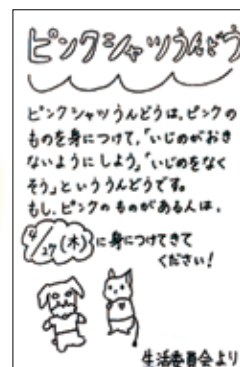 ピンクシャツうんどう
ピンクシャツうんどうは、ピンクの
ものを身につけて、「いじめがおき
ないようにしよう」「いじめをなく
そう」といううんどうです。
もし、ピンクのものがある人は、
4/27(木)に身につけてきて
ください!
生活委員会より